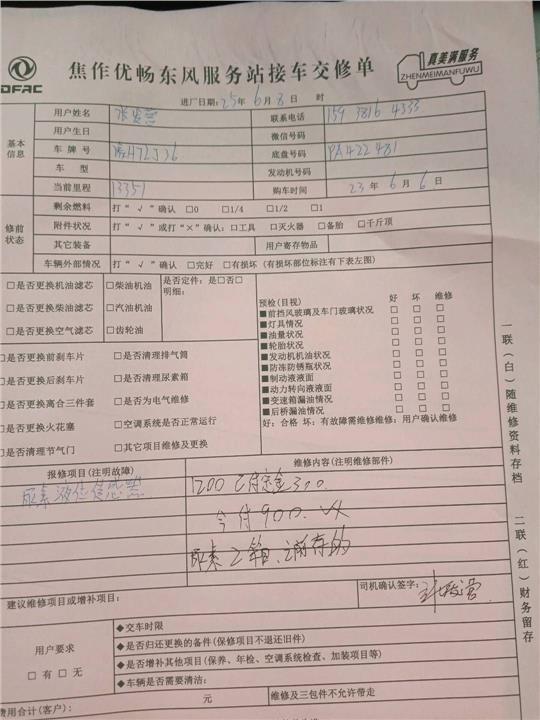 DFAC
焦作优畅东风服务站接车交修单
真美满服务
ZHENMEIMANFUWU
进厂日期：25年 6月 8日 时
基本信息
用户姓名
联系电话 159 3816 4333
用户生日
微信号码
车牌号
底盘号码 PA422481
车型
发动机号码
当前里程 13351
购车时间 23年 6月 6日
修前状态
剩余燃料 打“√”确认 □0 □1/4 □1/2 □1
附件状况 打“√”或打“×”确认：□工具 □灭火器 □备胎 □千斤顶
其它装备
用户寄存物品
车辆外部情况 打“√”确认 □完好 □有损坏（有损坏部位标注有下表左图）
□是否更换机油滤芯 □柴油机油 是否定件：是□否□
明细：
□是否更换柴油滤芯 □汽油机油
□是否更换空气滤芯 □齿轮油
预检(目视) 好 坏 维修
■前挡风玻璃及车门玻璃状况 □ □ □
■灯具情况 □ □ □
■油量状况 □ □ □
■轮胎状况 □ □ □
■发动机机油状况 □ □ □
■防冻防锈瓶状况 □ □ □
■制动液液面 □ □ □
■动力转向液液面 □ □ □
■变速箱漏油情况 □ □ □
■后桥漏油情况 □ □ □
好：合格 坏：有故障需维修维修：用户确认维修
□是否更换前刹车片 □是否清理排气筒
□是否更换后刹车片 □是否清理尿素箱
□是否更换离合三件套 □是否为电气维修
□是否更换火花塞 □空调系统是否正常运行
□是否清理节气门 □其它项目维修及更换
报修项目(注明故障)
维修内容(注明维修部件)
尿素液位传感器
1200 已付定金300.
今付900.
尿素2箱、之前存的
建议维修项目或增补项目：
司机确认签字：
用户要求
□有 □无
◆交车时限
◆是否归还更换的备件(保修项目不退还旧件)
◆是否增补其他项目(保养、年检、空调系统检查、加装项目等)
◆车辆是否需要清洁：
费用合计(客户)： 元
维修及三包件不允许带走
一联（白）随维修资料存档
二联（红）财务留存